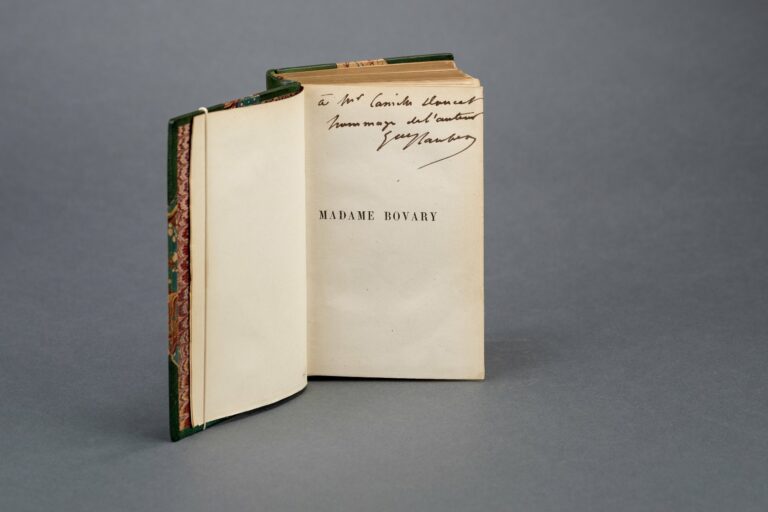 à Mr Camille Doucet
hommage de l'auteur
Gve Flaubert
MADAME BOVARY